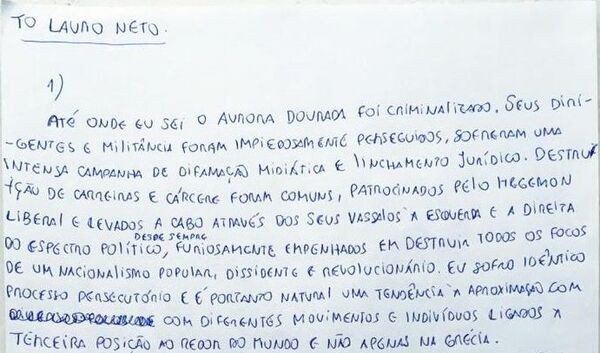 TO LAURO NETO.
1)
ATÉ ONDE EU SEI O AURORA DOURADA FOI CRIMINALIZADO. SEUS DIRI-
-GENTES E MILITÂNCIA FORAM IMPIEDOSAMENTE PERSEGUIDOS, SOFRERAM UMA
INTENSA CAMPANHA DE DIFAMAÇÃO MIDIÁTICA E LINCHAMENTO JURÍDICO. DESTRUI
IÇÃO DE CARREIRAS E CÁRCERE FORAM COMUNS, PATROCINADOS PELO HEGEMON
LIBERAL E LEVADOS A CABO ATRAVÉS DOS SEUS VASSALOS À ESQUERDA E A DIREITA
DESDE SEMPRE
DO ESPECTRO POLÍTICO, FURIOSAMENTE EMPENHADOS EM DESTRUIR TODOS OS FOCOS
DE UM NACIONALISMO POPULAR, DISSIDENTE E REVOLUCIONÁRIO. EU SOFRO IDÊNTICO
PROCESSO PERSECUTÓRIO E É PORTANTO NATURAL UMA TENDÊNCIA À APROXIMAÇÃO COM
COM DIFERENTES MOVIMENTOS E INDIVÍDUOS LIGADOS A
TERCEIRA POSIÇÃO AO REDOR DO MUNDO E NÃO APENAS NA GRÉCIA.